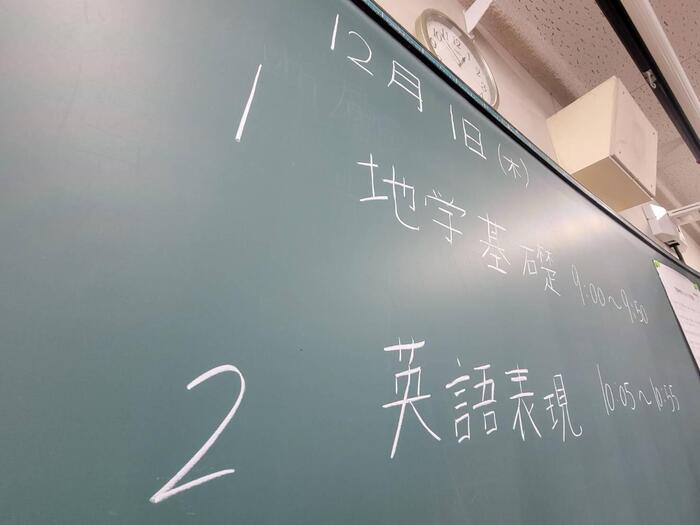 12月1日(木)
1 地学基礎 9:00~9:50
2 英語表現 10:05~10:55